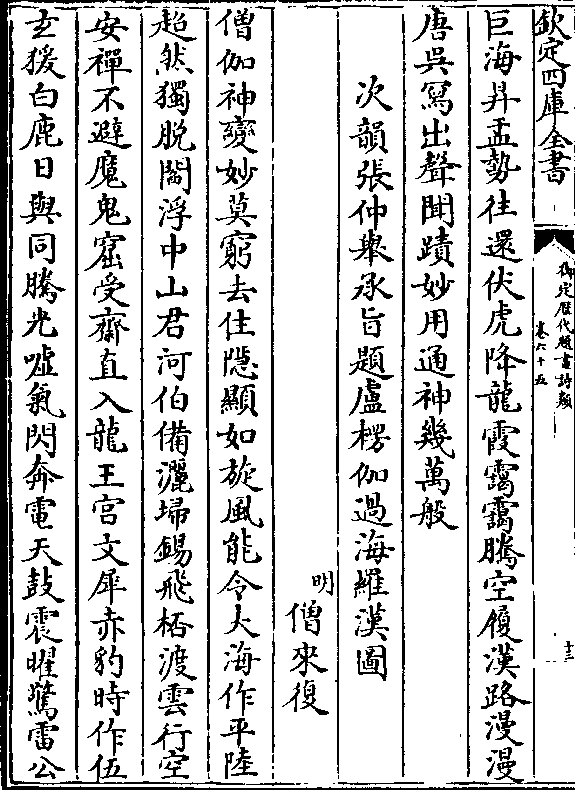 欽定四庫全書
御定歷代題畫詩類
卷六十五
十三
巨海昇盂勢往還伏虎降龍霞靄靄騰空履漢路漫漫
唐吳寫出聲聞蹟妙用通神幾萬般
次韻張仲舉承旨題盧楞伽過海羅漢圖
明 僧來復
僧伽神變妙莫窮去住隱顯如旋風能令大海作平陸
超然獨脫閻浮中山君河伯備灑埽錫飛桮渡雲行空
安禪不避魔鬼窟受齋直入龍王宮文犀赤豹時作伍
玄猨白鹿日與同騰光噓氣閃奔電天鼓震曜驚雷公